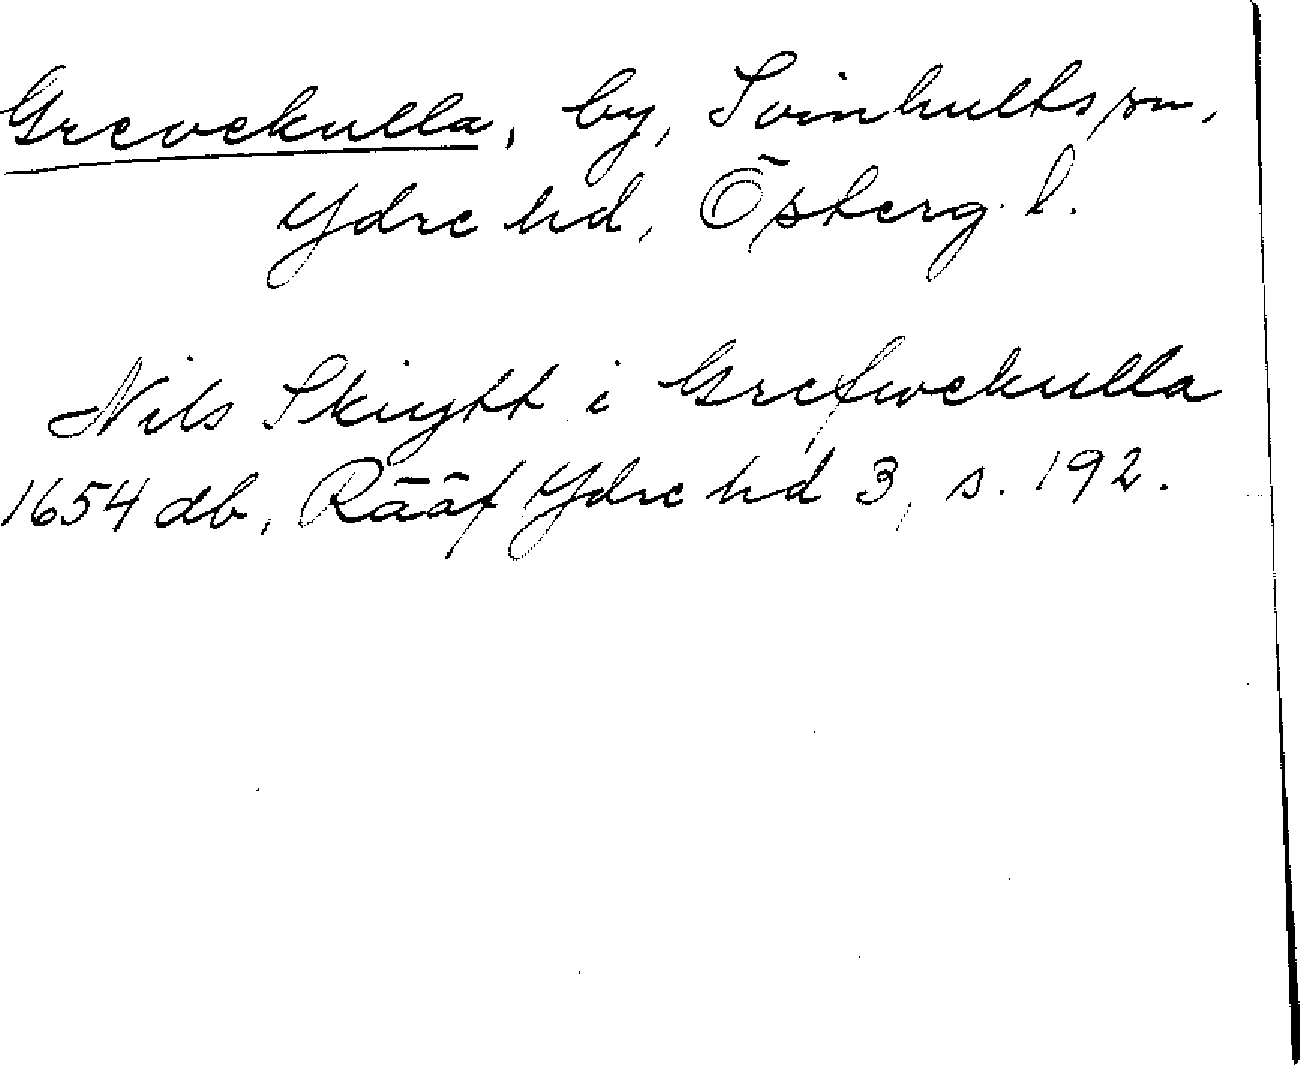 Grevekulla, by, Svinhults sn,
Ydre hd, Österg. l.
Nils Skiytt i Grefwekulla
1654 db, Rääf Ydre hd 3, s. 192.